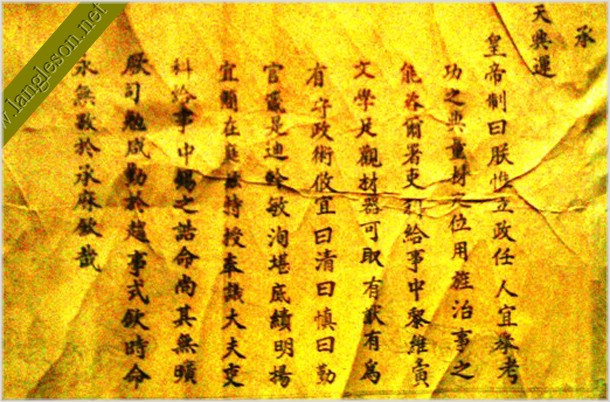 承
天興運
皇帝制曰朕惟立政任人宜參考
功之典量材定位用旌治事之
能茲爾署吏科給事中黎維寅
文學足觀材器可取有猷有為
有守政術攸宜曰清曰慎曰勤
官箴是迪幹敏洵堪底績明揚
宜顯在庭茲特授奉議大夫吏
科給事中錫之誥命尚其無曠
厥司勉勤於趨事式欽時命
永無斁於承庥欽哉
www.langleson.net